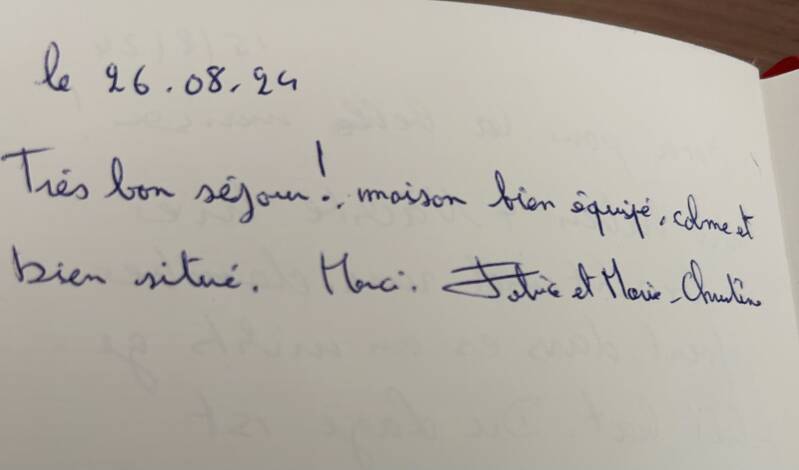 le 26.08.24
Très bon séjour!, maison bien équipé, calme et
bien situé. Merci. et Marie-Christine